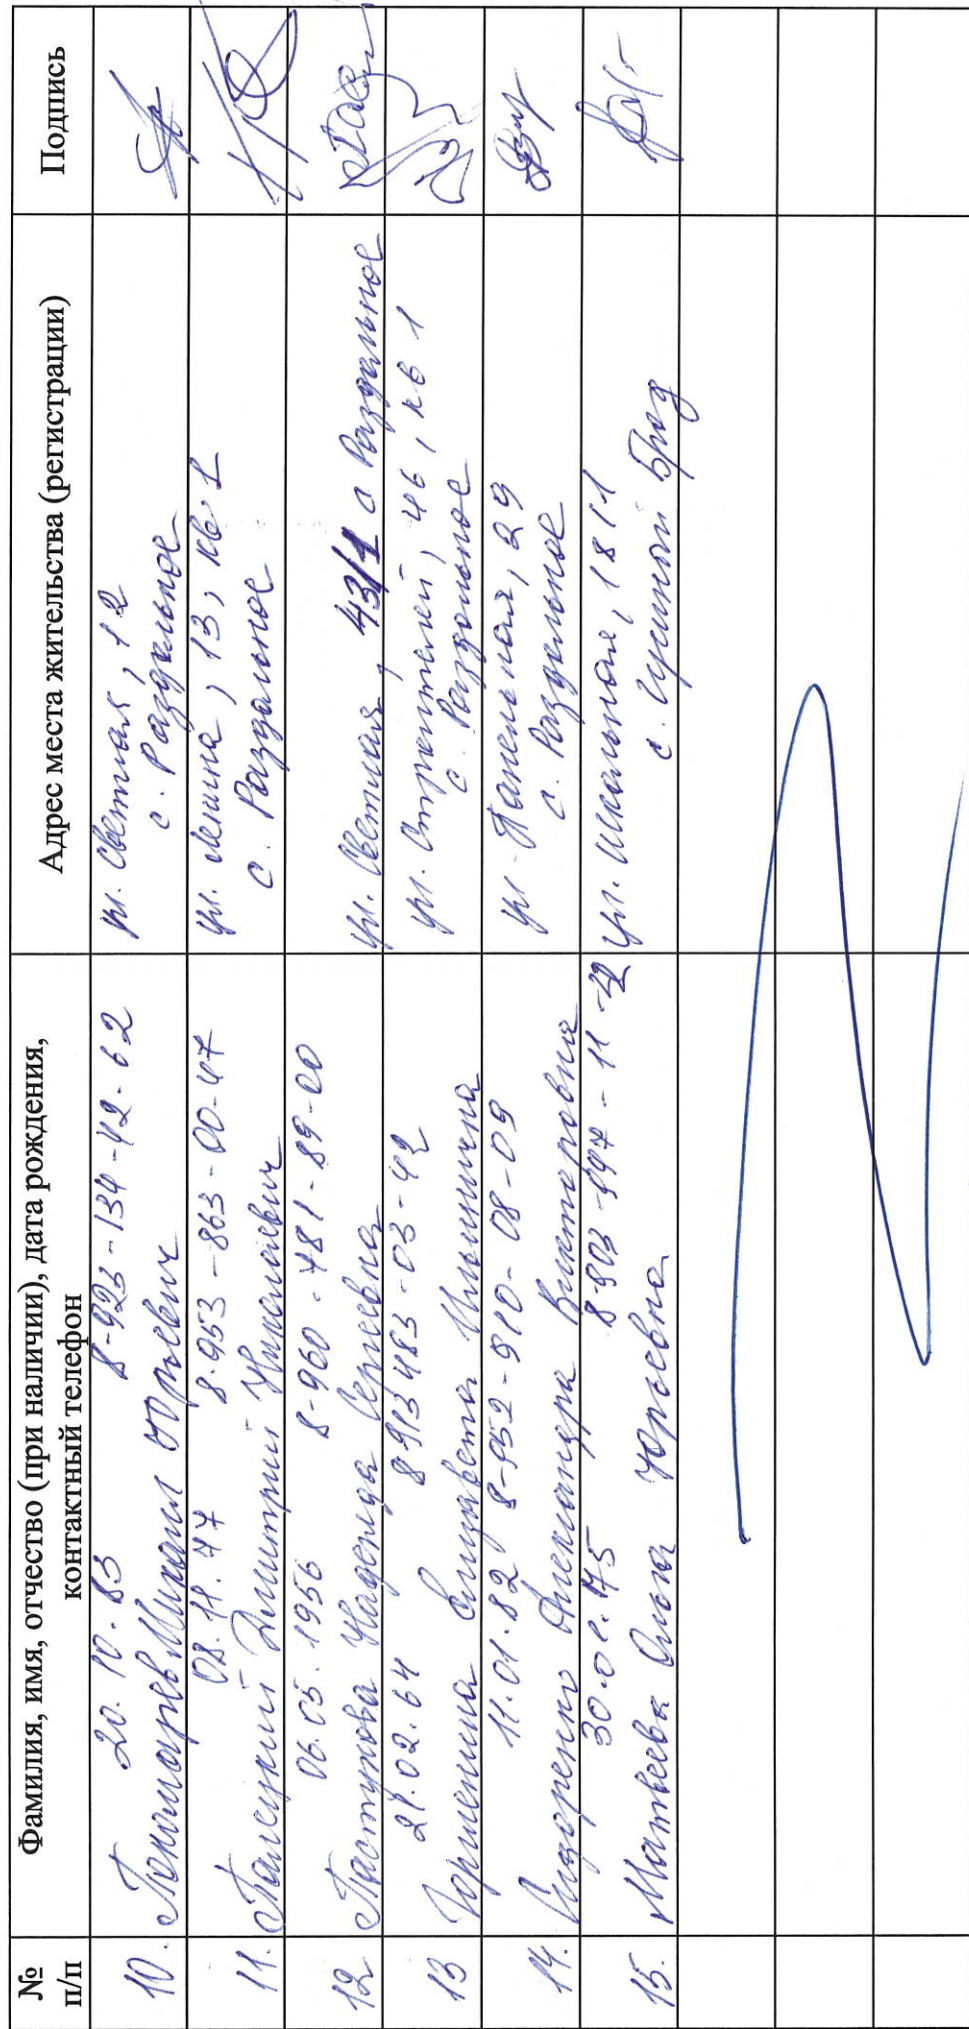 № п/п
Фамилия, имя, отчество (при наличии), дата рождения,
контактный телефон
Адрес места жительства (регистрации)
Подпись
20.10.83 8-923-134-42-62
10. Пономарёв Михаил Юрьевич
ул. Светлая, 12
с. Раздольное
08.11.77 8-953-863-00-47
11. Палецкий Дмитрий Николаевич
ул. Ленина, 13, кв. 1
с. Раздольное
06.05.1956 8-960-781-89-00
12 Пастухова Надежда Сергеевна
ул. Светлая, 43/1 с Раздольное
21.02.64 8913483-03-42
13 Елизавета Ильинична
ул. Строителей, 46, кв 1
с. Раздольное
11.01.82 8-952-910-08-09
14. Сидоренко Александра Викторовна
29
с. Раздольное
30.01.75 8-903-997-11-
15. Матвеева Ольга Юрьевна
ул. Школьная, 18/1
с. Гусиный Брод